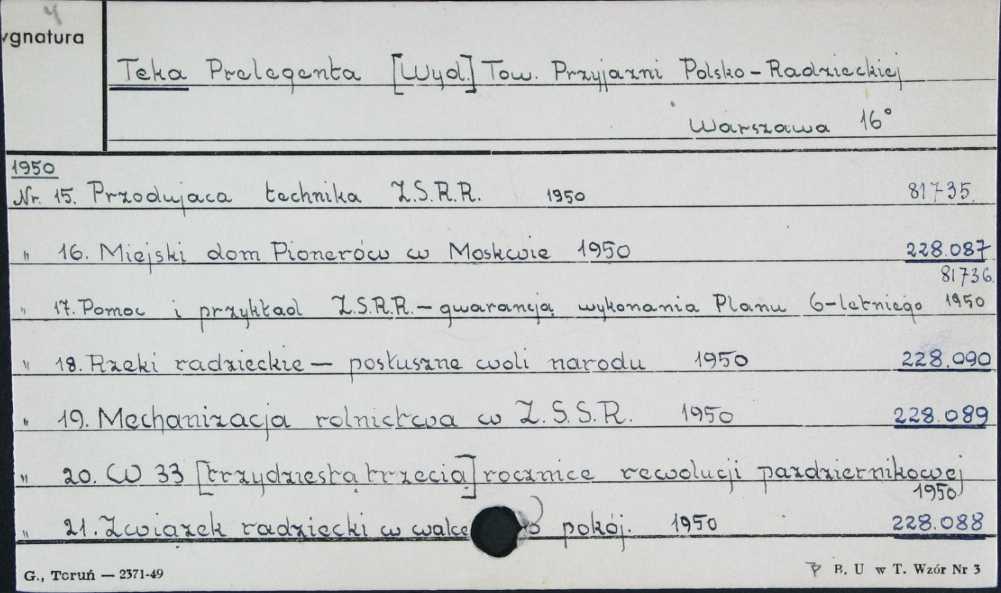 4
ygnatura
Teka Prelegenta [Wyd.] Tow. Przyjazni Polsko-Radzieckiej
Warszawa 16°
1950
Nr. 15. Przodujaca technika Z.S.R.R. 1950 81735.
" 16. Miejski dom Pionerów w Moskwie 1950 228.087
81736.
" 17. Pomoc i przykład Z.S.R.R. - gwarancją wykonania Planu 6-letniego 1950
" 18. Rzeki radzieckie - posłuszne woli narodu 1950 228.090
" 19. Mechanizacja rolnictwa w Z.S.S.R. 1950 228.089
" 20. W 33 [trzydziestą trzecią] rocznice rewolucji pazdziernikowej
1950
" 21. Związek radziecki w walce o pokój. 1950 228.088
G., Toruń — 2371-49
B. U w T. Wzór Nr 3